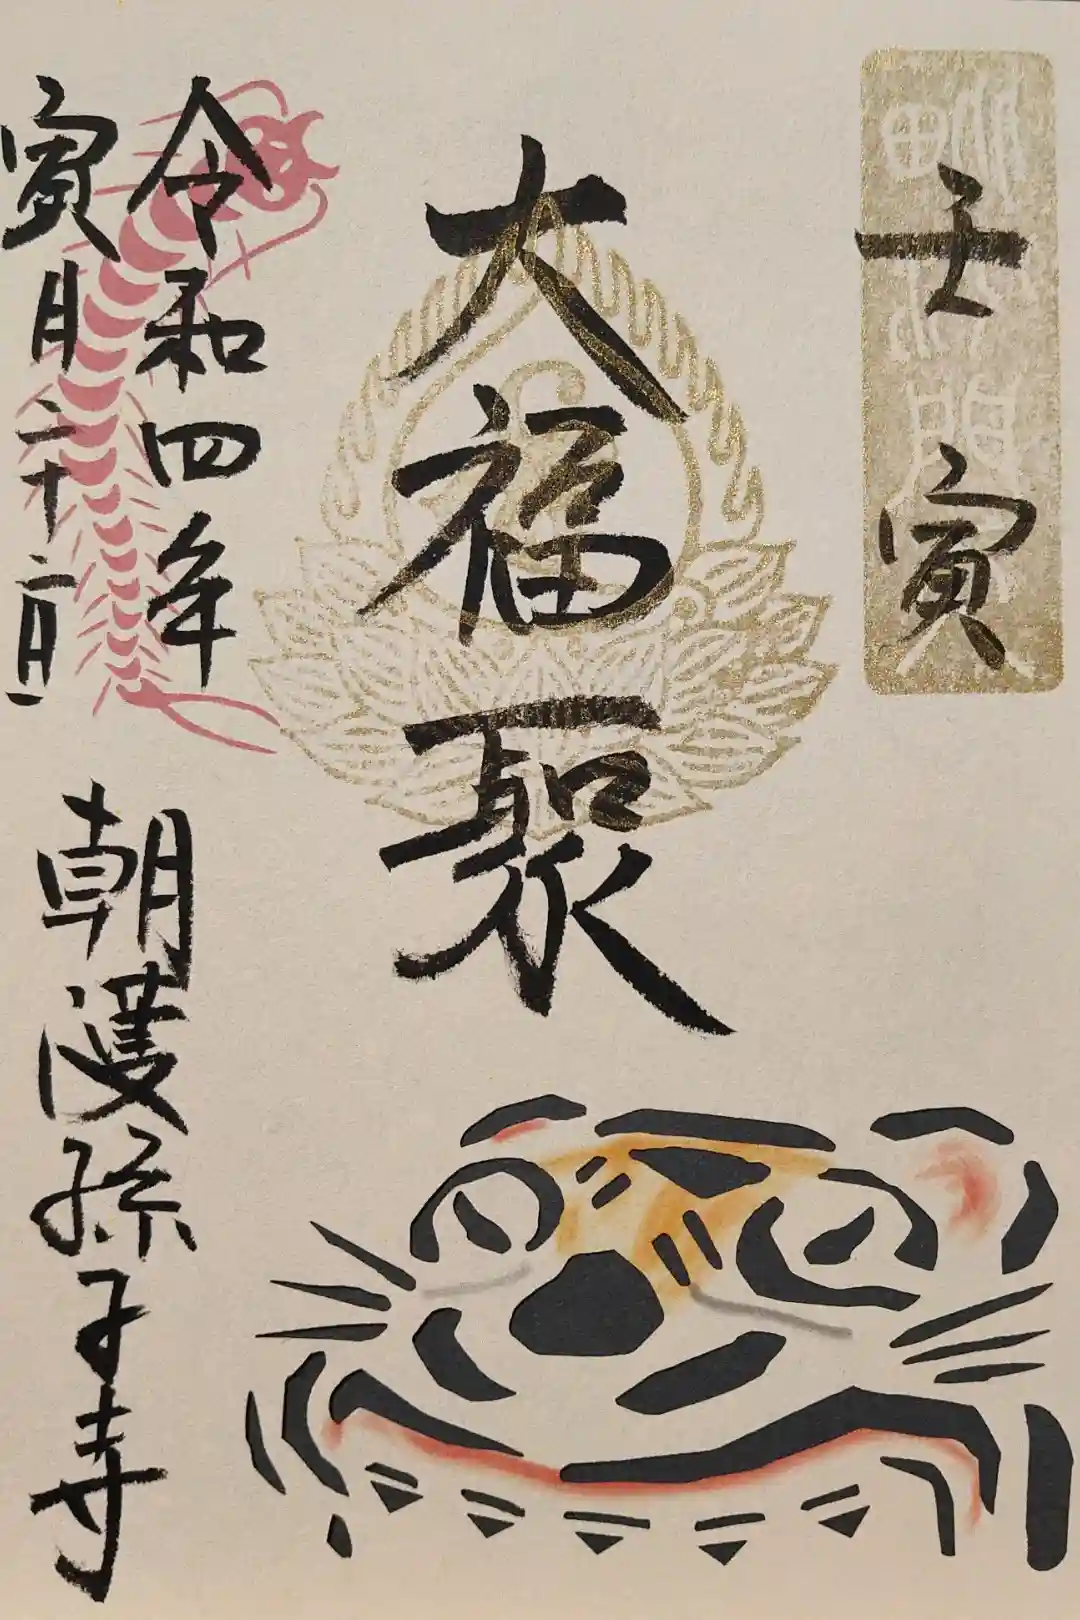 壬寅
大福聚
令和四年
寅月二十二日
朝護孫子寺